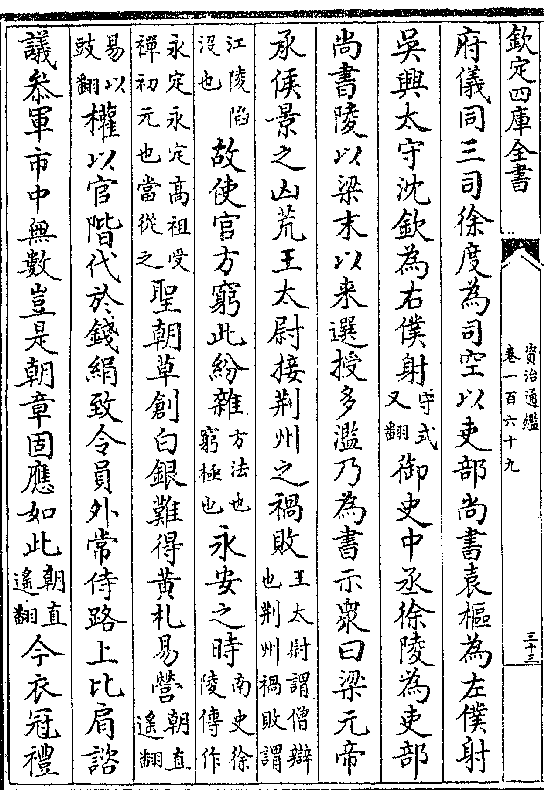 欽定四庫全書
資治通鑑
卷一百六十九
三十三
府儀同三司徐度為司空以吏部尚書袁樞為左僕射
吳興太守沈欽為右僕射守式又翻御史中丞徐陵為吏部
尚書陵以梁末以来選授多濫乃為書示衆曰梁元帝
承侯景之凶荒王太尉接荆州之禍敗王太尉謂僧辯也荆州禍敗謂
江陵陷沒也故使官方窮此紛雜方法也窮極也永安之時南史徐陵傳作
永定永定高祖受禪初元也當從之聖朝草創白銀難得黄札易營朝直遙翻
易以豉翻權以官階代於錢絹致令員外常侍路上比肩諮
議叅軍市中無數豈是朝章固應如此朝直遙翻今衣冠禮